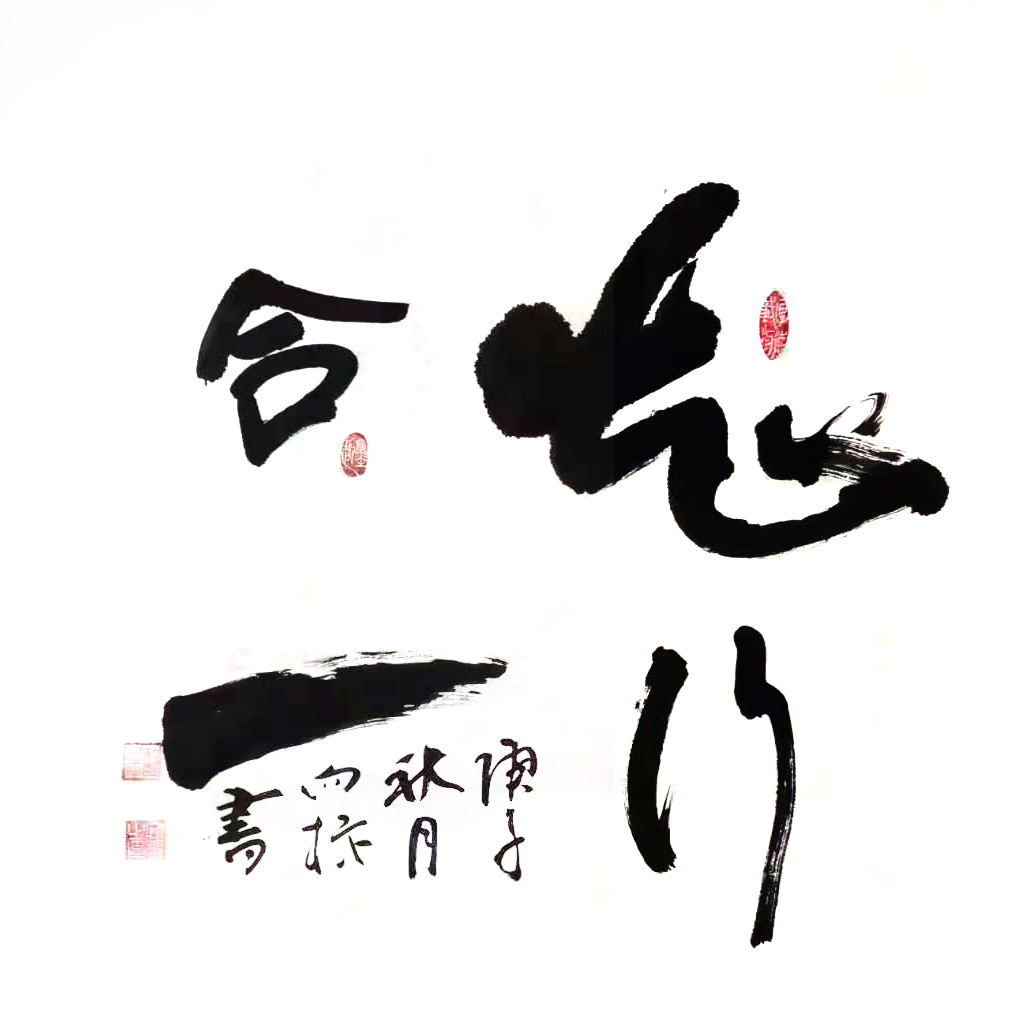 知行
合一
庚子
秋月
向
書